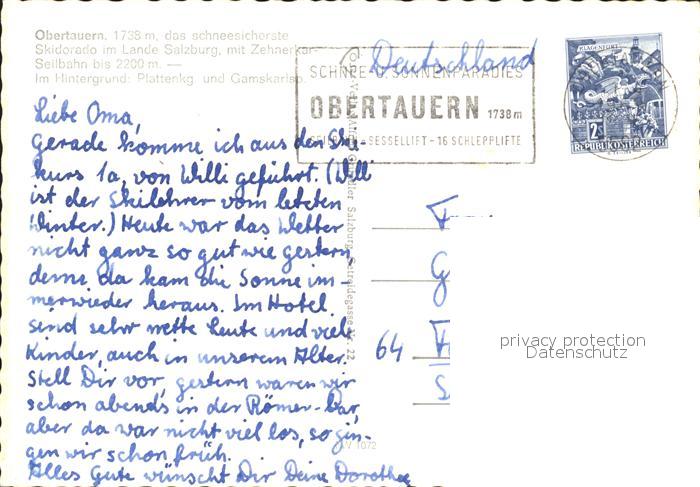 Obertauern, 1738 m, das schneesicherste
Skidorado im Lande Salzburg, mit Zehnerkar-
Seilbahn bis 2200 m. —
Im Hintergrund: Plattenkg. und Gamskarlsp.
Deutschland
SCHNEE-U. SONNENPARADIES
OBERTAUERN 1738 m
SESSELLIFT - 16 SCHLEPPLIFTE
KLAGENFURT
2S
REPUBLIK ÖSTERREICH
Liebe Oma,
gerade komme ich aus den Ski-
kurs 1a, von Willi geführt. (Willi
ist der Skilehrer vom letzten
Winter.) Heute war das Wetter
nicht ganz so gut wie gestern,
denn da kam die Sonne im-
merwieder heraus. Im Hotel
sind sehr nette Leute und viele
Kinder, auch in unserem Alter.
Stell Dir vor, gestern waren wir
schon abends in der Römer-bar,
aber da war nicht viel los, so gin-
gen wir schon früh.
Alles Gute wünscht Dir Deine Dorothee
Salzburg, Getreidegasse Nr. 22
1072
F
G
64 F
S
privacy protection
Datenschutz